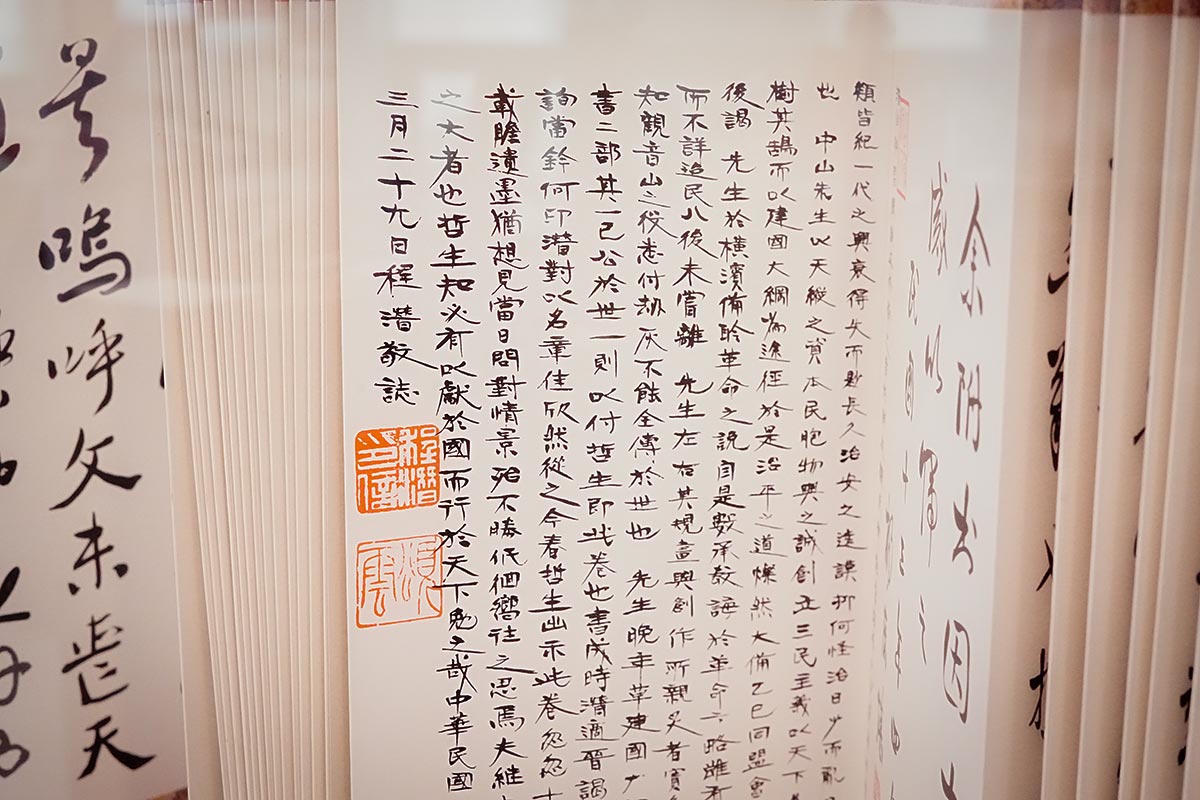 余附出因
類皆紀一代之興衰得失而尠長久治安之遠謨抑何怪治日少而亂
也 中山先生以天縱之資本民胞物與之誠創立三民主義以天下
樹其鵠而以建國大綱為途徑於是治平之道燦然大備乙巳同盟會
後謁 先生於橫濱備聆革命之說自是數承教誨於革命方略雖有
而不詳迨民八後未嘗離 先生左右其規畫與創作所親炙者實
知觀音山之役悉付劫灰不能全傳於世也 先生晚年草建國大
書二部其一已公於世一則以付哲生即此卷也書成時潛適晉謁
詢當鈐何印潛對以名章佳欣然從之今春哲生出示此卷忽忽十
載瞻遺墨猶想見當日問對情景殆不勝低徊嚮往之思焉夫繼
之大者也哲生知必有以獻於國而行於天下勉之哉中華民國
三月二十九日程潛敬誌
程潛
頌雲
嗚呼文未喪天